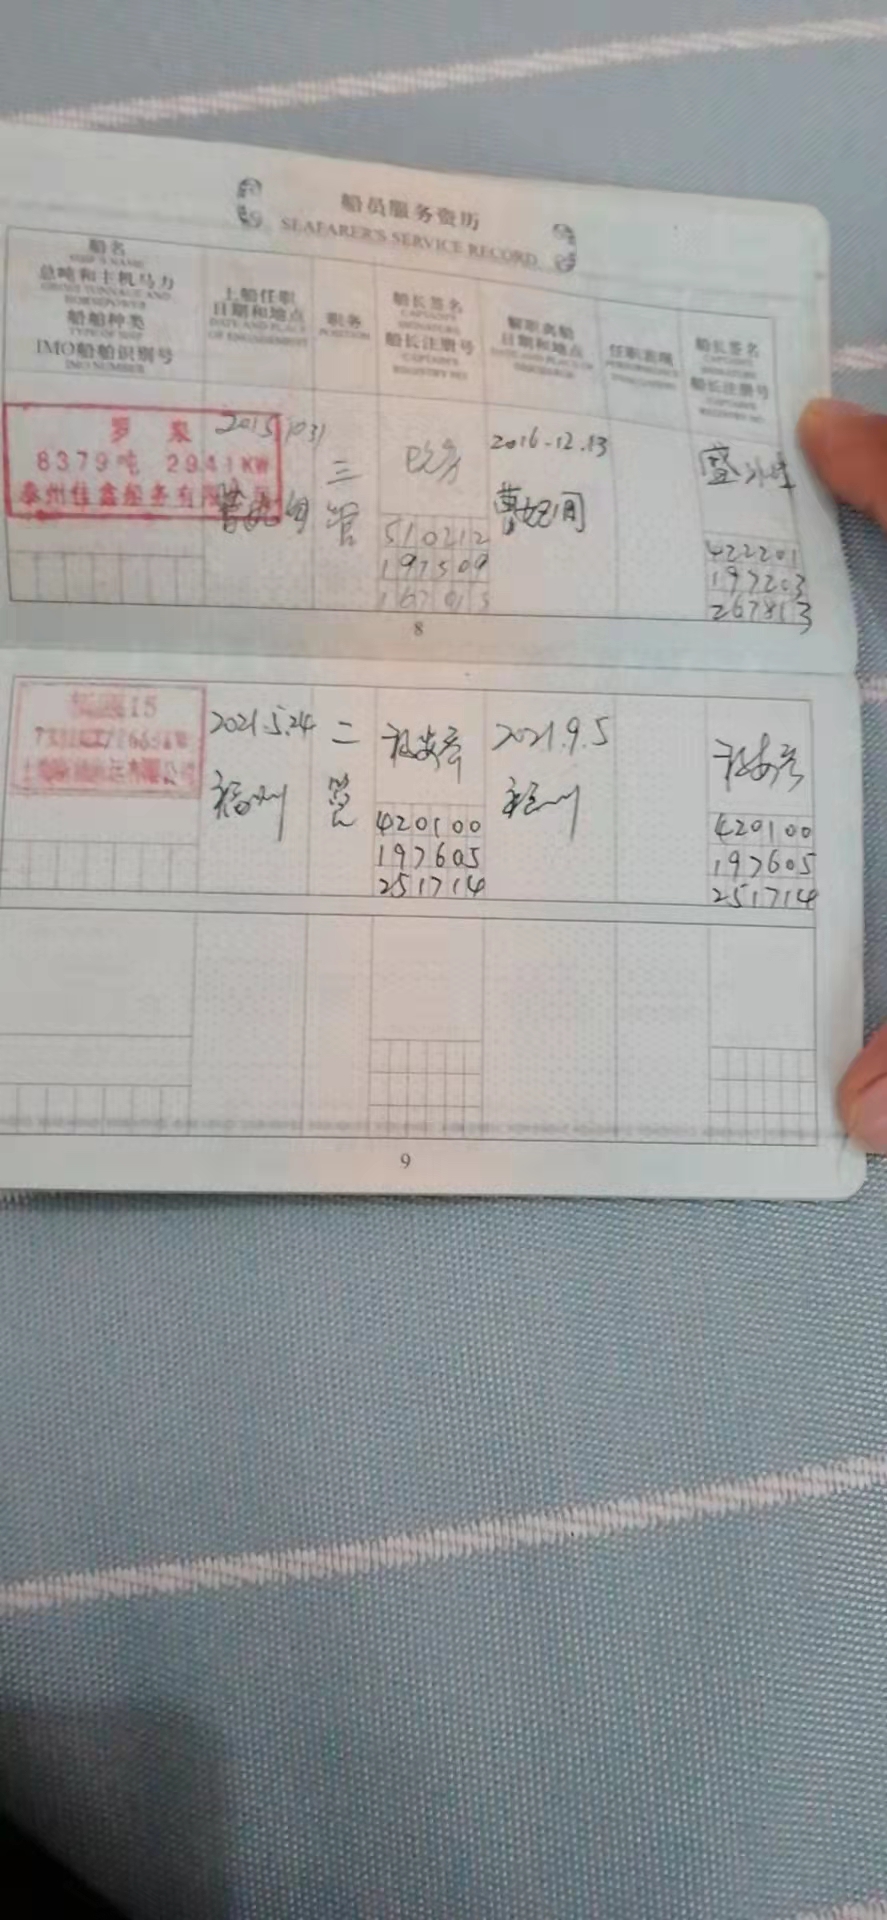 船员服务资历
SEAFARER'S SERVICE RECORD
船名
SHIP'S NAME
总吨和主机马力
GROSS TONNAGE AND
HORSEPOWER
船舶种类
TYPE OF SHIP
IMO船舶识别号
IMO NUMBER
上船任职
日期和地点
DATE AND PLACE
OF ENGAGEMENT
职务
POSITION
船长签名
CAPTAIN'S
SIGNATURE
船长注册号
CAPTAIN'S
REGISTRY NO.
解职离船
日期和地点
DATE AND PLACE OF
DISCHARGE
任职表现
PERFORMANCE
船长签名
CAPTAIN'S
SIGNATURE
船长注册号
CAPTAIN'S
REGISTRY NO.
罗泉
8379吨 2941KW
泰州佳鑫船务有限
2015 1031
曹妃甸
三
管
510212
197509
2016-12.13
曹妃甸
盛
422201
197203
267813
8
15
2021.5.24
福州
二
管
420100
197605
251714
2021.9.5
福州
420100
197605
251714
9